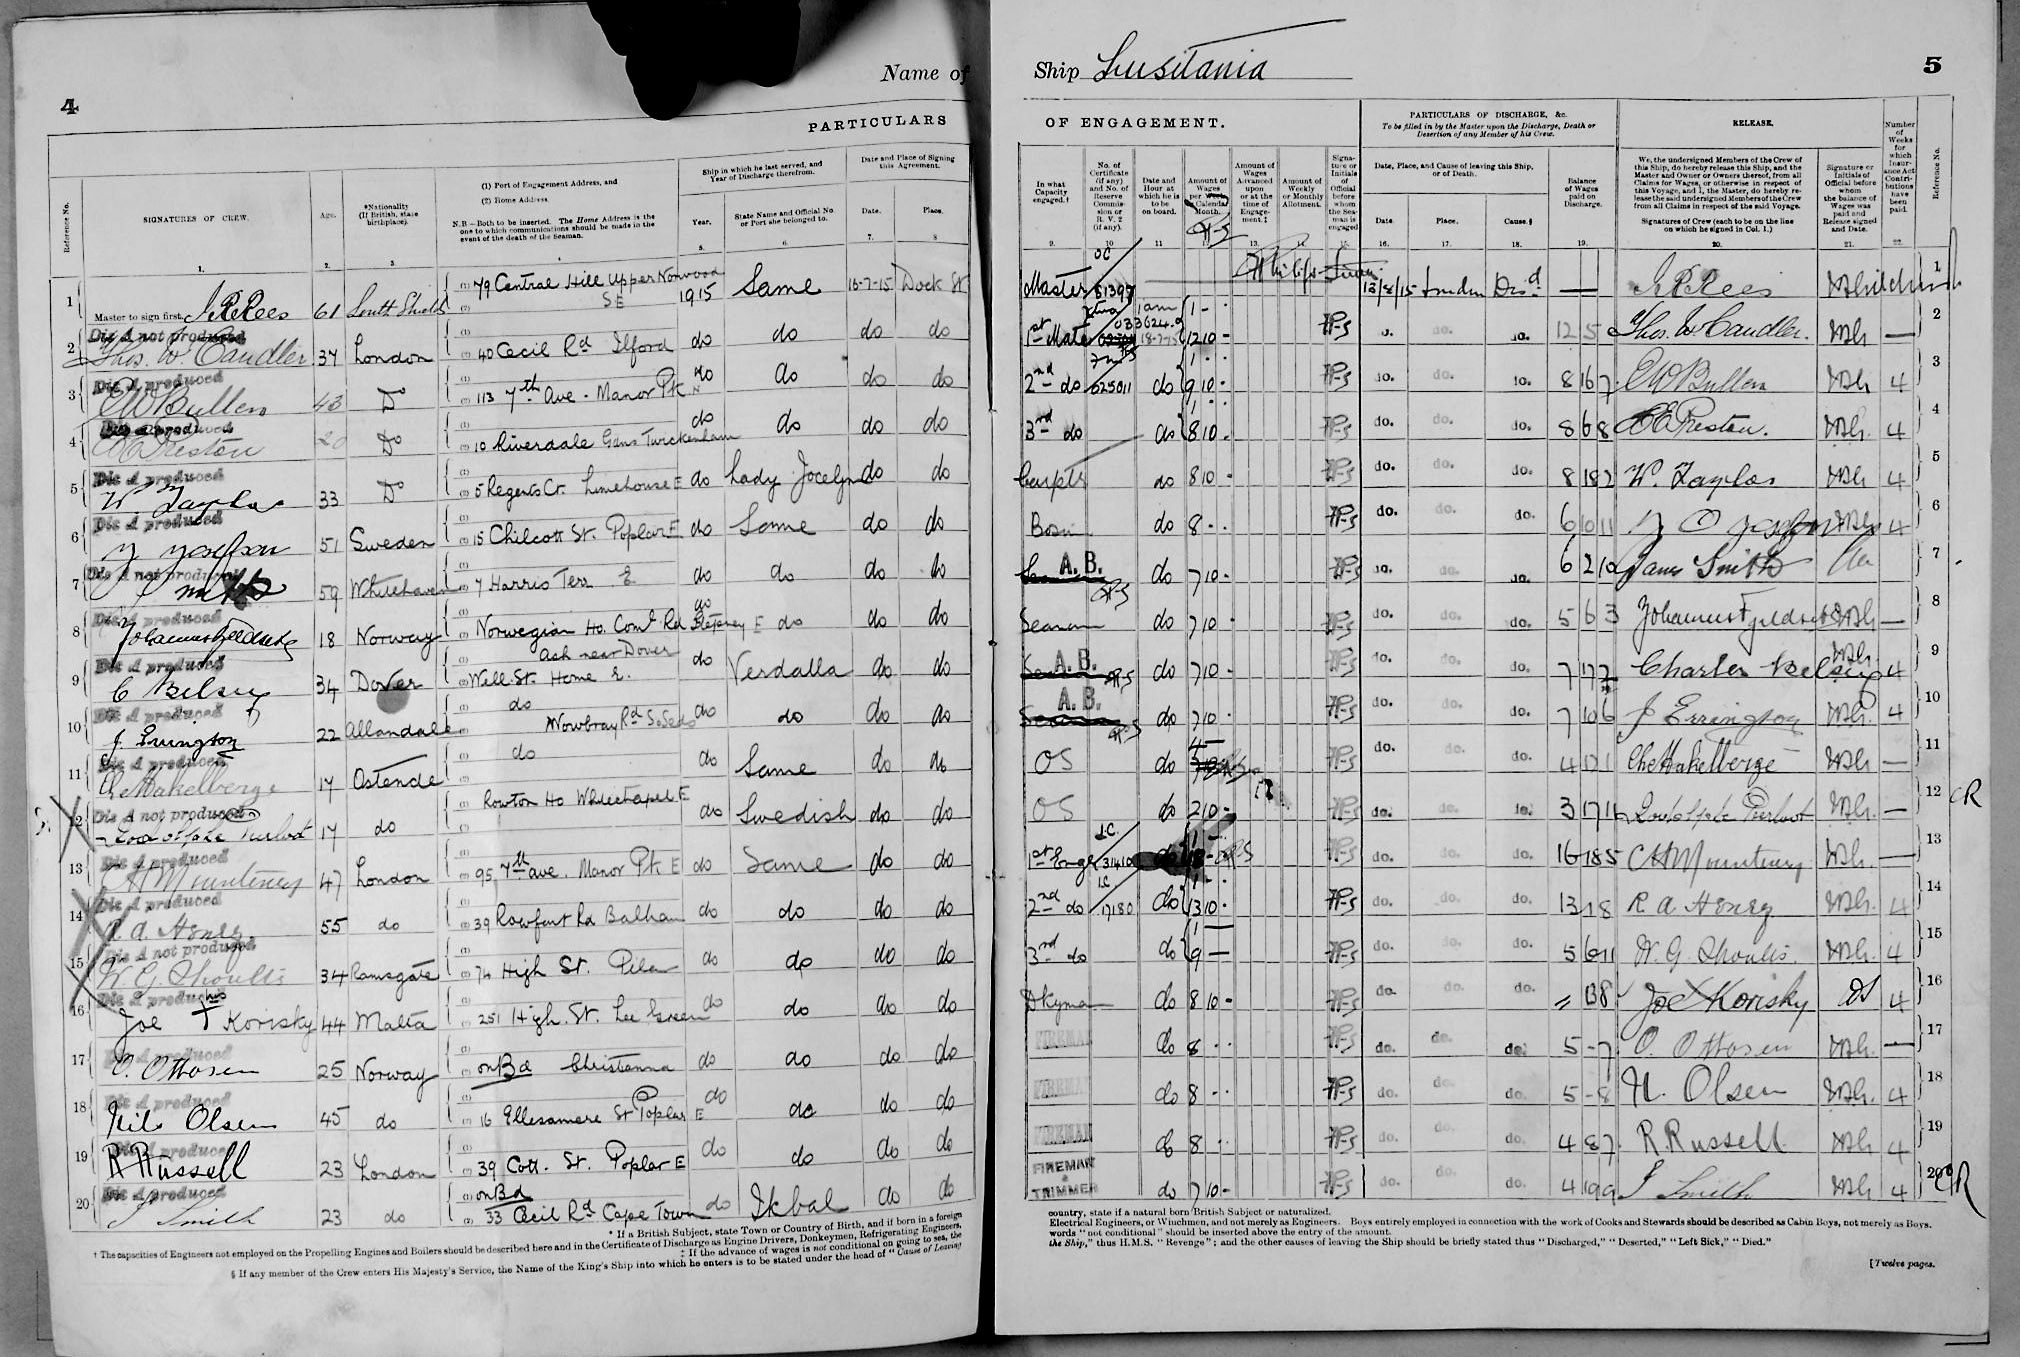 4
Name of
Ship Lusitania
5
PARTICULARS
OF ENGAGEMENT.
PARTICULARS OF DISCHARGE, &c.
To be filled in by the Master upon the Discharge, Death or Desertion of any Member of his Crew.
RELEASE.
Reference No.
SIGNATURES OF CREW.
Age.
*Nationality (If British, state birthplace).
(1) Port of Engagement Address, and
(2) Home Address
N.B—Both to be inserted. The Home Address is the one to which communications should be made in the event of the death of the Seaman.
Ship in which he last served, and Year of Discharge therefrom.
Year.
State Name and Official No. or Port she belonged to.
Date and Place of Signing this Agreement.
Date.
Place.
In what Capacity engaged.†
No. of Certificate (if any) and No. of Reserve Commission or R.V. 2 (if any).
Date and Hour at which he is to be on board.
Amount of Wages per Week Calendar Month.
Amount of Wages Advanced upon or at the time of Engagement.‡
Amount of Weekly or Monthly Allotment.
Signature or Initials of Official before whom the Seaman is engaged
Date, Place, and Cause of leaving this Ship, or of Death.
Date.
Place.
Cause.§
Balance of Wages paid on Discharge.
We, the undersigned Members of the Crew of this Ship, do hereby release this Ship, and the Master and Owner or Owners thereof, from all Claims for Wages, or otherwise in respect of this Voyage, and I, the Master, do hereby release the said undersigned Members of the Crew from all Claims in respect of the said Voyage.
Signatures of Crew (each to be on the line on which he signed in Col. 1.)
Signature or Initials of Official before whom the balance of Wages was paid and Release signed and Date.
Number of Weeks for which Insurance Act Contributions have been paid.
Reference No.
1 Master to sign first. J R Rees 61 South Shields 79 Central Hill Upper Norwood SE 1915 Same 16-7-15 Dock St Master 81397 13/8/15 London Dis'd — J R Rees 1
Dis A not produced
2 Thos. W. Candler 37 London 40 Cecil Rd Ilford do do do do 1st Mate 033624 1 am 18-7-15 12 10 - do. 12 5 Thos. W Candler. — 2
Dis A produced
3 E W Bullen 43 Do 113 7th Ave. Manor Pk do do do do 2nd do 025011 do 9 10 - do. do. do. 8 16 7 E W Bullen 4 3
Dis A produced
4 Preston 20 Do 10 Riverdale Gdns Twickenham do do do do 3rd do do 8 10 - do. do. do. 8 6 8 Preston. 4 4
Dis A produced
5 W. Taylor 33 Do 5 Regents Ct. Limehouse E do Lady Jocelyn do do Carptr do 8 10 - do. do. do. 8 18 2 W. Taylor 4 5
Dis A produced
6 51 Sweden 15 Chilcott St. Poplar E do Same do do Bosn do 8 - - do. do. do. 6 10 11 4 6
Dis A not produced
7 59 Whitehaven 7 Harris Terr E do do do do A.B. do 7 10 - do. do. do. 6 2 10 James Smith 7
Dis A produced
8 18 Norway Norwegian Ho. Coml Rd Stepney E do do do do Seaman do 7 10 - do. do. do. 5 6 3 — 8
Dis A produced
9 C Kelsey 34 Dover Ash near Dover Well St. Home E. do Verdalla do do A.B. do 7 10 - do. do. do. 7 17 2 Charles Kelsey 4 9
Dis A produced
10 J. Errington 22 Allandale do Mowbray Rd So. Seds do do do do A.B. do 7 10 - do. do. do. 7 10 6 J Errington 4 10
Dis A produced
11 17 Ostende do do Same do do OS do do. do. do. 4 — 11
Dis A not produced
12 17 do Rowton Ho Whitechapel E do Swedish do do OS do 2 10 - do. do. do. 3 17 — 12 CR
Dis A produced
13 C H Mounteney 47 London 95 7th ave. Manor Pk E do Same do do 1st Engr 31410 do 18 - do. do. do. 16 18 5 C H Mounteney — 13
Dis A produced
14 R. A. Henry 55 do 39 Rowfant Rd Balham do do do do 2nd do 17180 do 13 10 - do. do. do. 13 1 8 R. A Henry 4 14
Dis A not produced
15 W. G. Shoults 34 Ramsgate 74 High St. do do do do 3rd do do 9 — do. do. do. 5 6 11 W. G Shoults. 4 15
Dis A produced
16 Joe Korisky 44 Malta 251 High. St. Lee Green do do do do Dkyman do 8 10 - do. do. do. Joe Korisky 4 16
Dis A produced
17 O. Ottosen 25 Norway on Bd Christianna do do do do FIREMAN do 8 - - do. do. do. 5 - 7 O. Ottosen — 17
Dis A produced
18 Nils Olsen 45 do 16 Ellesmere St Poplar E do do do do FIREMAN do 8 - - do. do. do. 5 - 8 N. Olsen 4 18
Dis A produced
19 R Russell 23 London 39 Cott. St. Poplar E do do do do FIREMAN do 8 - - do. do. do. 4 8 7 R Russell 4 19
Dis A produced
20 J Smith 23 do on Bd 33 Cecil Rd Cape Town do Ikbal do do FIREMAN & TRIMMER do 7 10 - do. do. do. 4 19 9 J Smith 4 20 CR
* If a British Subject, state Town or Country of Birth, and if born in a foreign country, state if a natural born British Subject or naturalized.
† The capacities of Engineers not employed on the Propelling Engines and Boilers should be described here and in the Certificate of Discharge as Engine Drivers, Donkeymen, Refrigerating Engineers, Electrical Engineers, or Winchmen, and not merely as Engineers. Boys entirely employed in connection with the work of Cooks and Stewards should be described as Cabin Boys, not merely as Boys.
‡ If the advance of wages is not conditional on going to sea, the words "not conditional" should be inserted above the entry of the amount.
§ If any member of the Crew enters His Majesty's Service, the Name of the King's Ship into which he enters is to be stated under the head of "Cause of Leaving the Ship," thus H.M.S. "Revenge"; and the other causes of leaving the Ship should be briefly stated thus "Discharged," "Deserted," "Left Sick," "Died."
[Twelve pages.